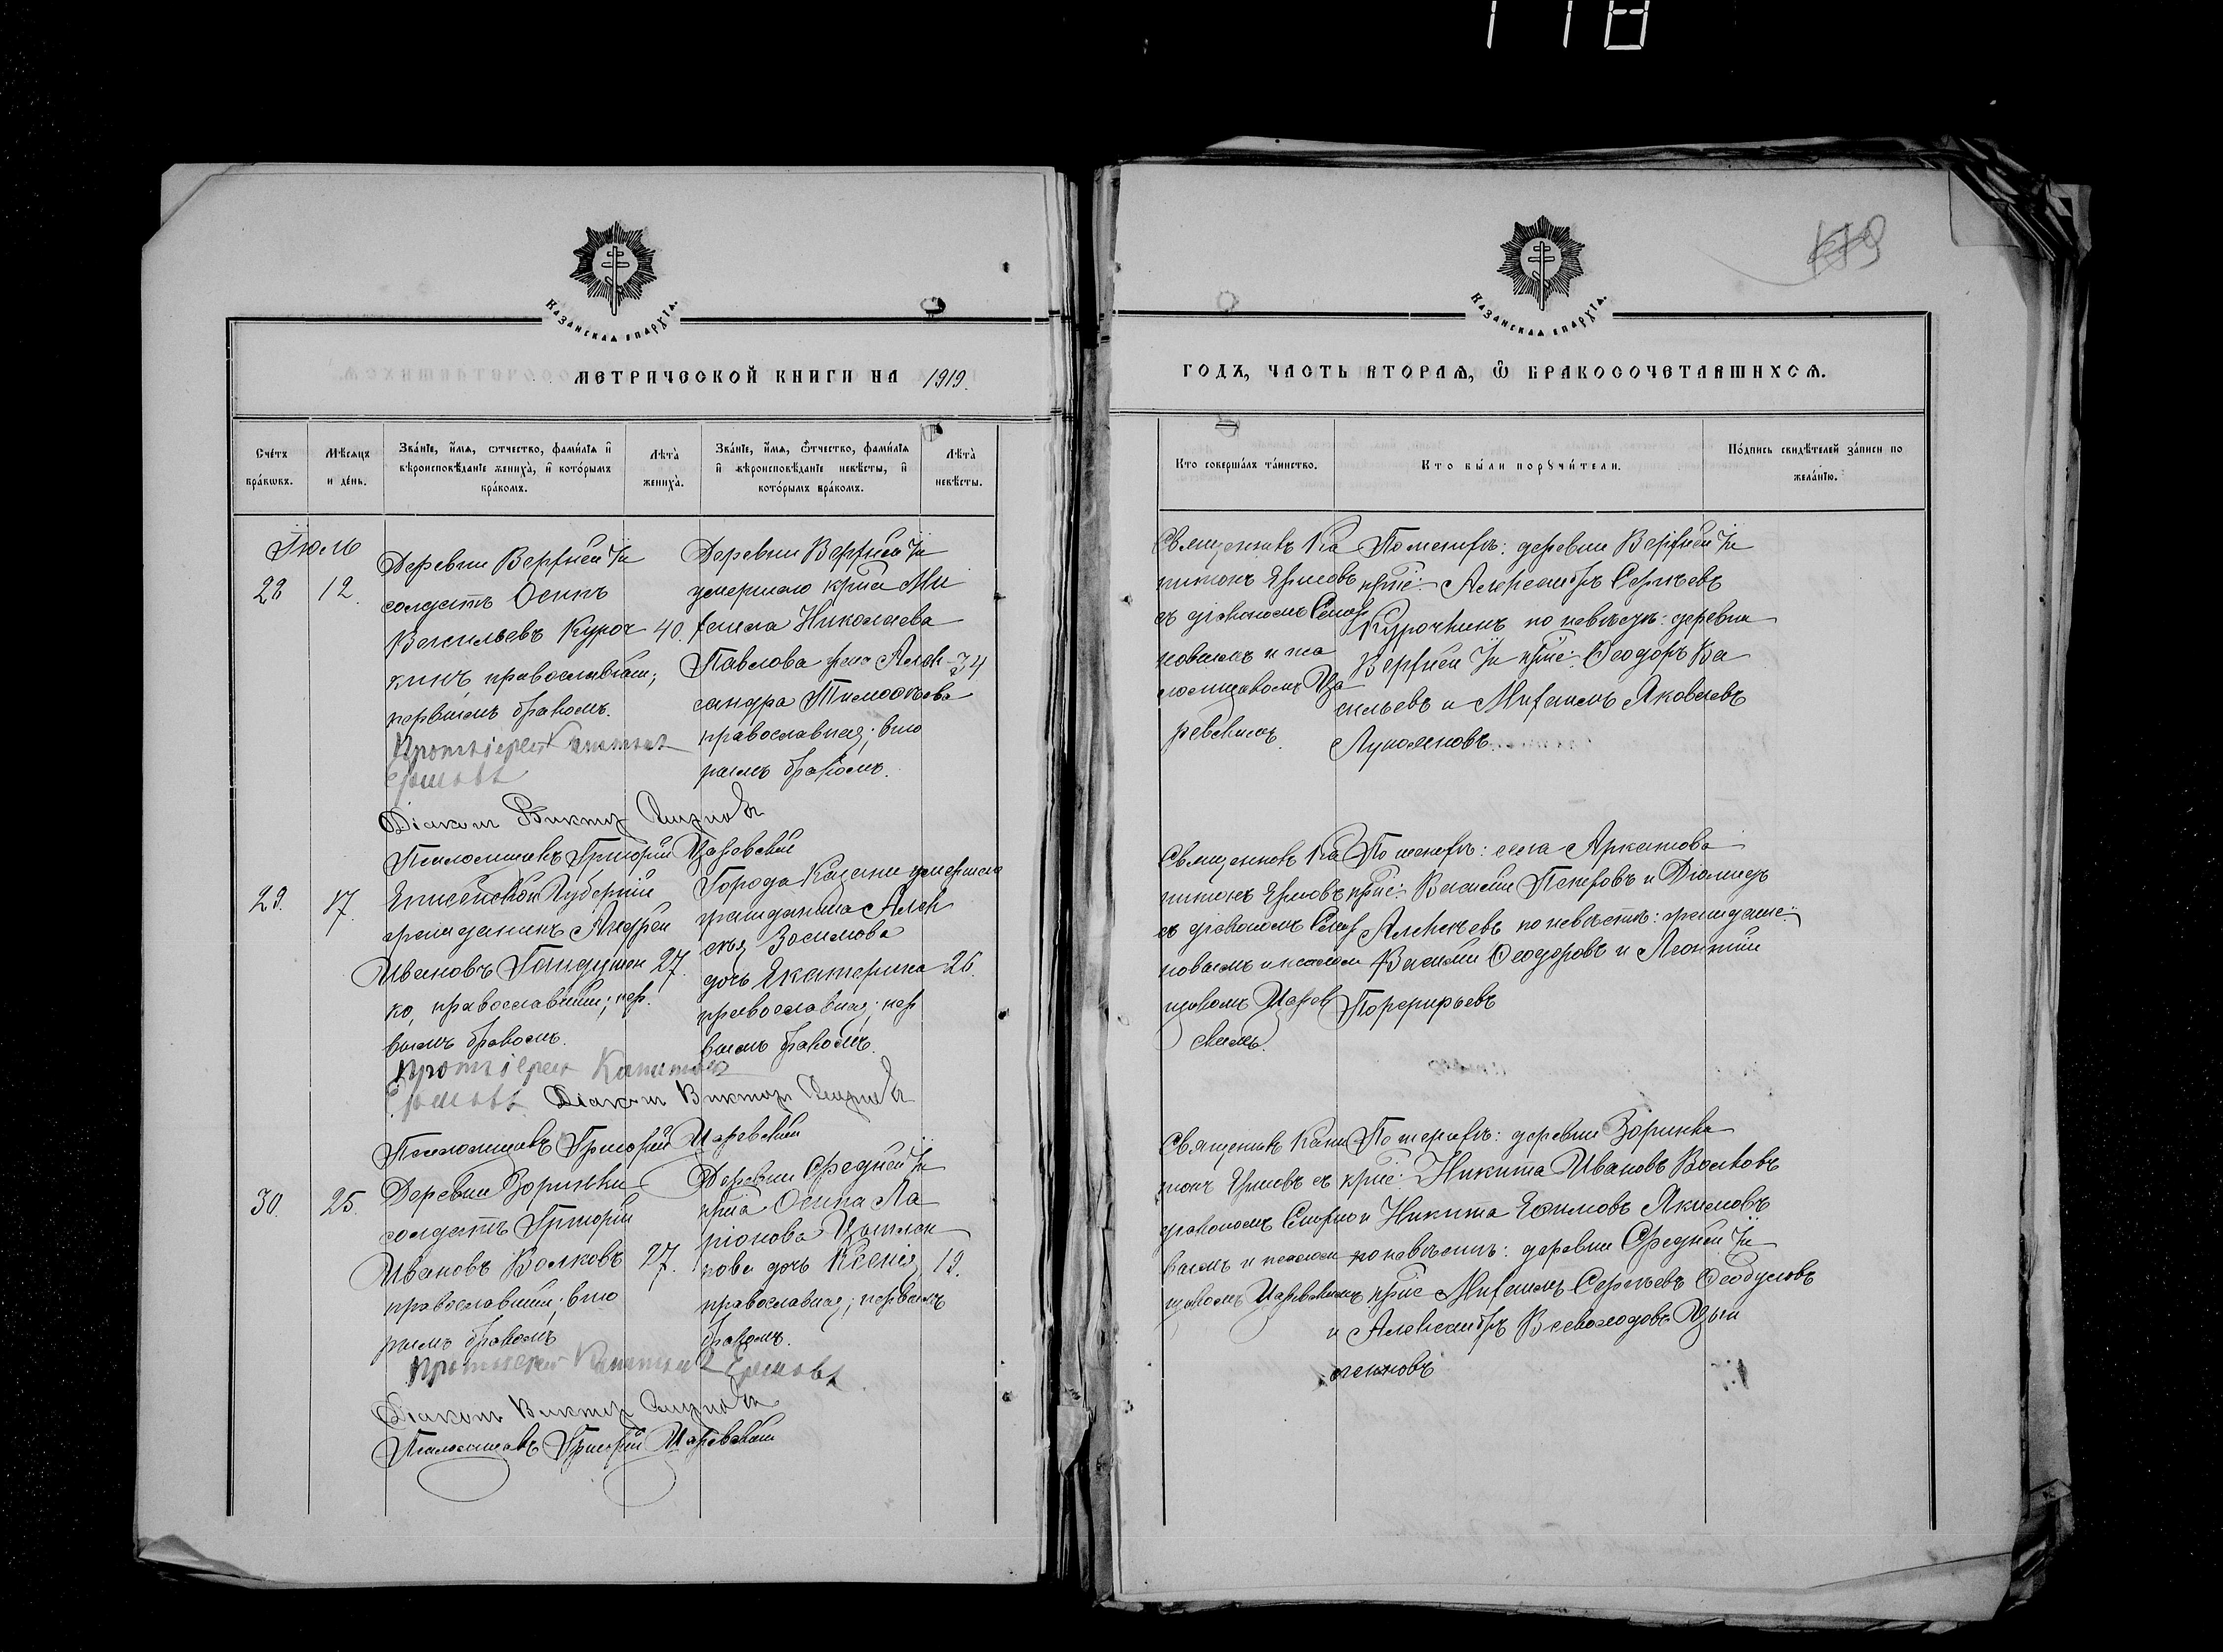 118
119
КАЗАНСКАЯ ЕПАРХІЯ.
МЕТРИЧЕСКОЙ КНИГИ НА 1919.
Счетъ бракωвъ.
Мѣсяцъ и день.
Званіе, имя, ѻтчество, фамилія и вѣроисповѣданіе жениха, и которымъ бракомъ.
Лѣта жениха.
Званіе, имя, ѻтчество, фамилія и вѣроисповѣданіе невѣсты, и которымъ бракомъ.
Лѣта невѣсты.
Іюль
28
12.
Деревни Верхней Ія
солдатъ Осипъ
Васильевъ Куроч
кинъ, православный;
первымъ бракомъ.
40.
Деревни Верхней Ія
умершаго кр-на Ми
хаила Николаева
Павлова жена Алек
сандра Тимоѳеева
православная; вто
рымъ бракомъ.
34
Протоіерей Капитонъ
Ермовъ
Діаконъ Викторъ Смирновъ
Псаломщикъ Григорій Царевскій
29.
17.
Енисейской Губерніи
гражданинъ Андрей
Ивановъ
ко, православный; пер
вымъ бракомъ.
27.
Города Казани умершаго
гражданина Алек
сѣя Зосимова
дочь Екатерина
православная; пер
вымъ бракомъ.
26.
Протоіерей Капитонъ
Ермовъ Діаконъ Викторъ Смирновъ
Псаломщикъ Григорій Царевскій
30.
25.
Деревни Зоринки
солдатъ Григорій
Ивановъ Волковъ
православный; вто
рымъ бракомъ
27.
Деревни Средней Ія
кр-на Осипа Ла
ріонова
кова дочь Ксенія,
православная; первымъ
бракомъ.
19.
Протоіерей Капитонъ Ермовъ
Діаконъ Викторъ Смирновъ
Псаломщикъ Григорій Царевскій
КАЗАНСКАЯ ЕПАРХІЯ.
ГОДЪ, ЧАСТЬ ВТОРАЯ, Ѿ БРАКОСОЧЕТАВШИХСЯ.
Кто совершалъ таинство.
Кто были поручители.
Подпись свидѣтелей записи по желанію.
Священникъ Ка
питонъ Ермовъ
съ діакономъ Смир
новымъ и пса
ломщикомъ Ца
ревскимъ.
По женихѣ: деревни Верхней Ія
крне: Александръ Сергѣевъ
Курочкинъ по невѣстѣ: деревни
Верхней Ія крне: Ѳеодоръ Ва
сильевъ и Михаилъ Яковлевъ
Лукояновъ
Священникъ Ка
питонъ Ермовъ
съ діакономъ Смир
новымъ и псалом
щикомъ Царев
скимъ.
По женихѣ: села Аркатова
крне: Василій Петровъ и Діомидъ
Алексѣевъ по невѣстѣ: граждане:
Василій Ѳеодоровъ и Леонтій
Порфирьевъ
Священникъ Капи
тонъ Ермовъ съ
діакономъ Смирно
вымъ и псалом
щикомъ Царевскимъ
По женихѣ: деревни Зоринки
крне: Никита Ивановъ Волковъ
и Никита Ефимовъ Якимовъ
по невѣстѣ: деревни Средней Ія
крне Михаилъ Сергѣевъ Ѳеодуловъ
и Александръ Всеволодовъ